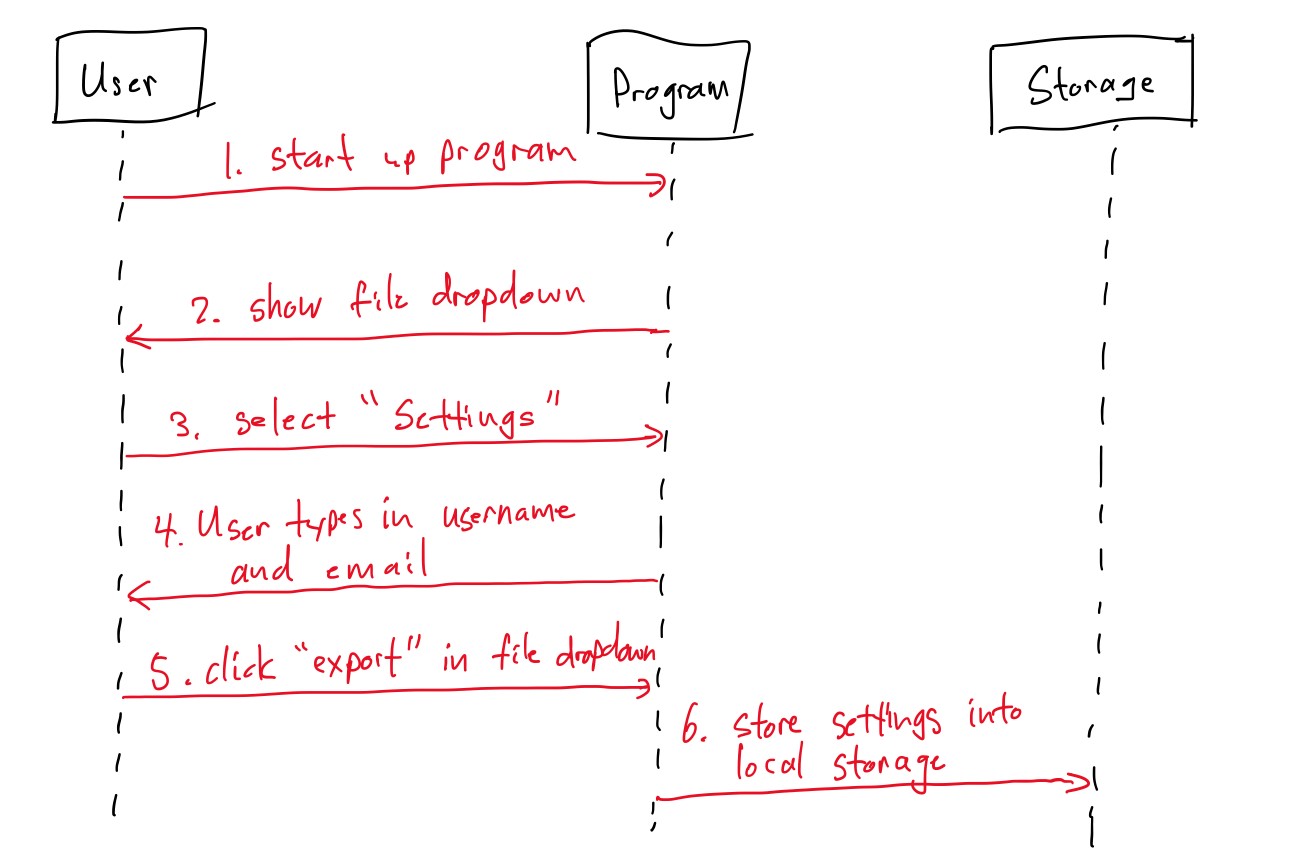 User
Program
Storage
1. start up program
2. show file dropdown
3. select "Settings"
4. User types in username
and email
5. click "export" in file dropdown
6. store settings into
local storage